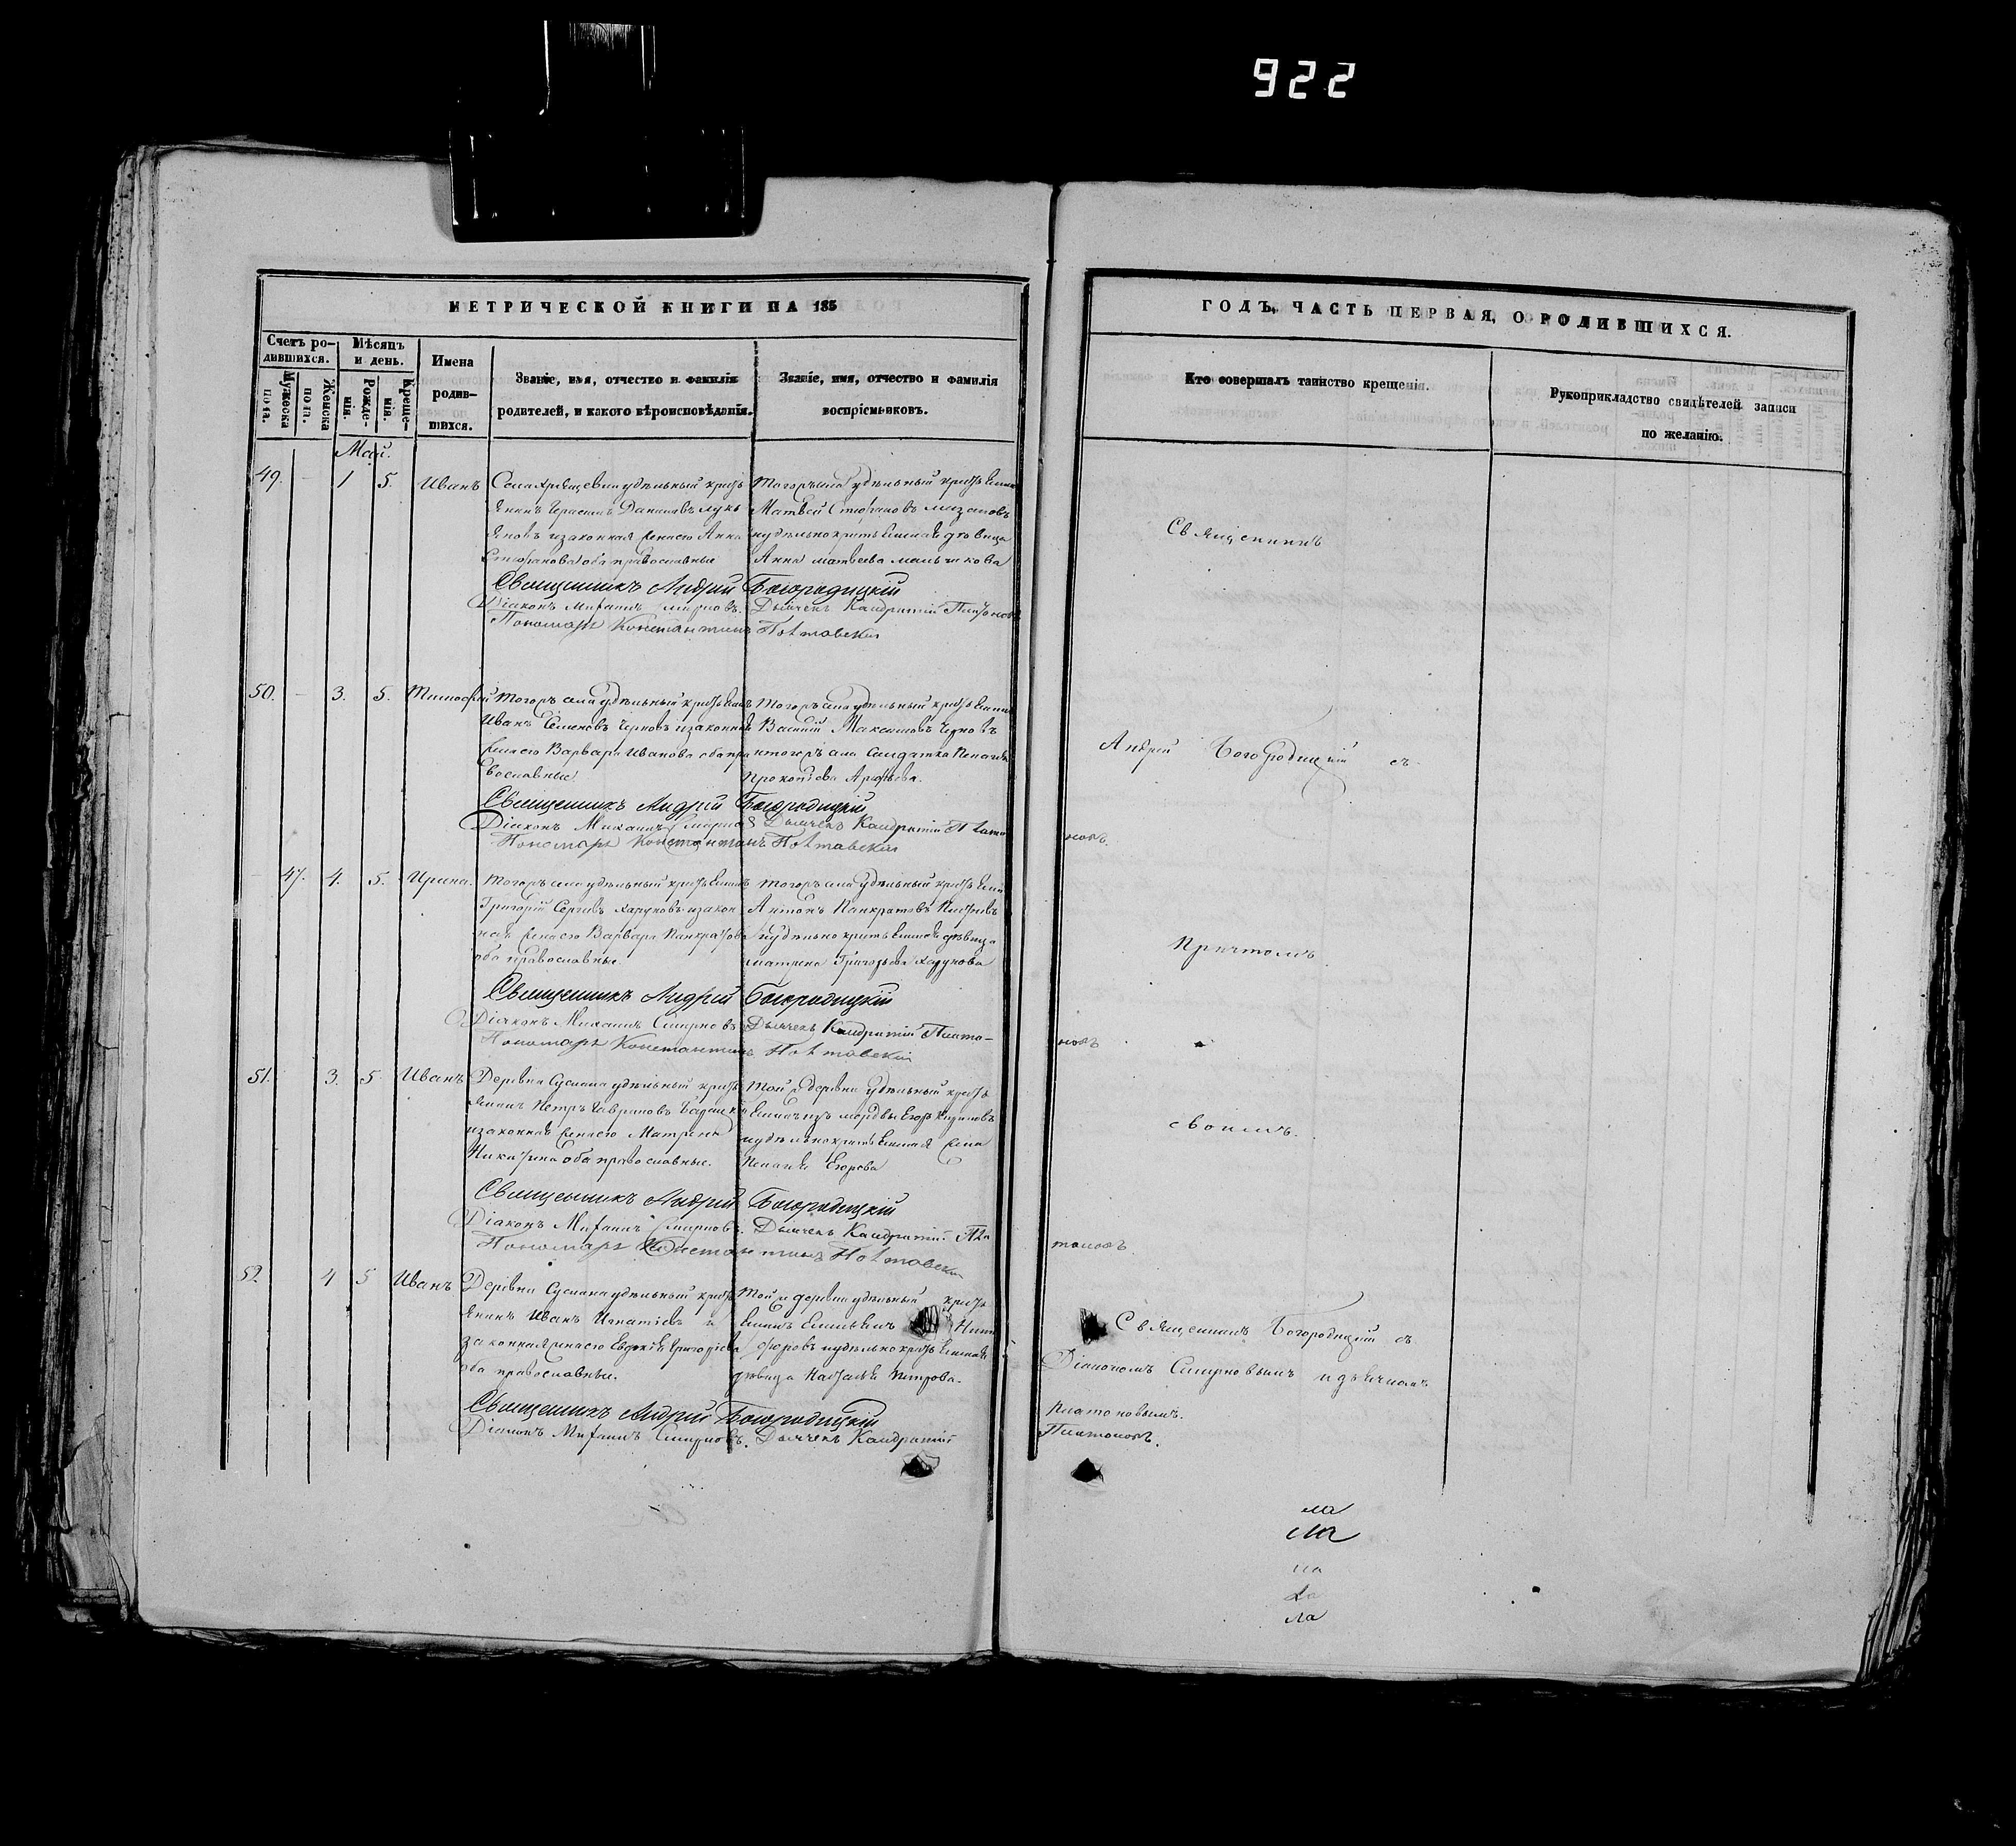 922
МЕТРИЧЕСКОЙ КНИГИ НА 185
ГОДЪ, ЧАСТЬ ПЕРВАЯ, О РОДИВШИХСЯ.
Счетъ ро-
дившихся.
Мужеска
пола.
Женска
пола.
Мѣсяцъ
и день.
Рожде-
нія.
Креще-
нія.
Имена
родив-
шихся.
Званіе, имя, отчество и фамилія
родителей, и какого вѣроисповѣданія.
Званіе, имя, отчество и фамилія
воспріемниковъ.
Кто совершалъ таинство крещенія.
Рукоприкладство свидѣтелей записи
по желанію.
Май.
49. – 1 5. Иванъ
удѣльный кресть
янинъ Герасимъ Даниловъ Лукь
яновъ изаконная жена его Анна
Стефанова оба православные
Тогожъ села удѣльный кресть янин
Матвей Стефановъ
иудельно кресть янская дѣвица
Анна Матвеева
Священникъ Андрей Богородицкій
Діаконъ Михаилъ Смирновъ. Дьячекъ Кандратій Платоновъ
Пономарь Константинъ Полтавскій
50. – 3. 5. Тимофей
Тогожъ села удѣльный кресть янинъ
Иванъ Семеновъ Черновъ изаконная
жена его Варвара Иванова оба пра
вославные
Тогожъ села удѣльный кресть янин
Василій Максимовъ Черновъ
итогожъ села Солдатка Пелагея
Прокопіева
Священникъ Андрей Богородицкій
Діаконъ Михаилъ Смирновъ Дьячекъ Кандратій Плато
новъ.
Пономарь Константинъ Полтавскій
– 47. 4. 5. Ирина.
Тогожъ села удѣльный кресть янинъ
Григорій Сергѣевъ изакон
ная жена его Варвара Панкратова
оба православные.
Тогожъ села удѣльный кресть янин
Антонъ Панкратовъ
иудѣльно кресть янская дѣвица
Матрена Григорьева
Священникъ Андрей Богородицкій
Діаконъ Михаилъ Смирновъ Дьячекъ Кандратій Плато-
новъ
Пономарь Константинъ Полтавскій
51. 3. 5. Иванъ
Деревни удѣльный кресть
янинъ Петръ Гавриловъ
изаконная жена его Матрена
Никитина оба православные.
Той же деревни удѣльный кресть
янинъ изъ мордвы Егоръ
иудѣльно кресть янская жена
Пелагея Егорова
Священникъ Андрей Богородицкій
Діаконъ Михаилъ Смирновъ. Дьячекъ Кандратій Пла
тоновъ.
Пономарь Константинъ Полтавскій
52 4 5 Иванъ
Деревни удѣльный кресть
янинъ Иванъ Игнатіевъ и
законная жена его Евдокія Григоріева
оба православные.
Той же деревни удѣльный кресть
янинъ Емельянъ Ники
форовъ иудѣльно кресть янская
дѣвица Наталья Петрова.
Священникъ Андрей Богородицкій
Діаконъ Михаилъ Смирновъ. Дьячекъ Кандратій
Платоновъ.
Священникъ
Андрей Богородицкій съ
Причтомъ
своимъ.
Священникъ Богородицкій съ
Діакономъ Смирновымъ и дьячкомъ
Платоновымъ.
ла